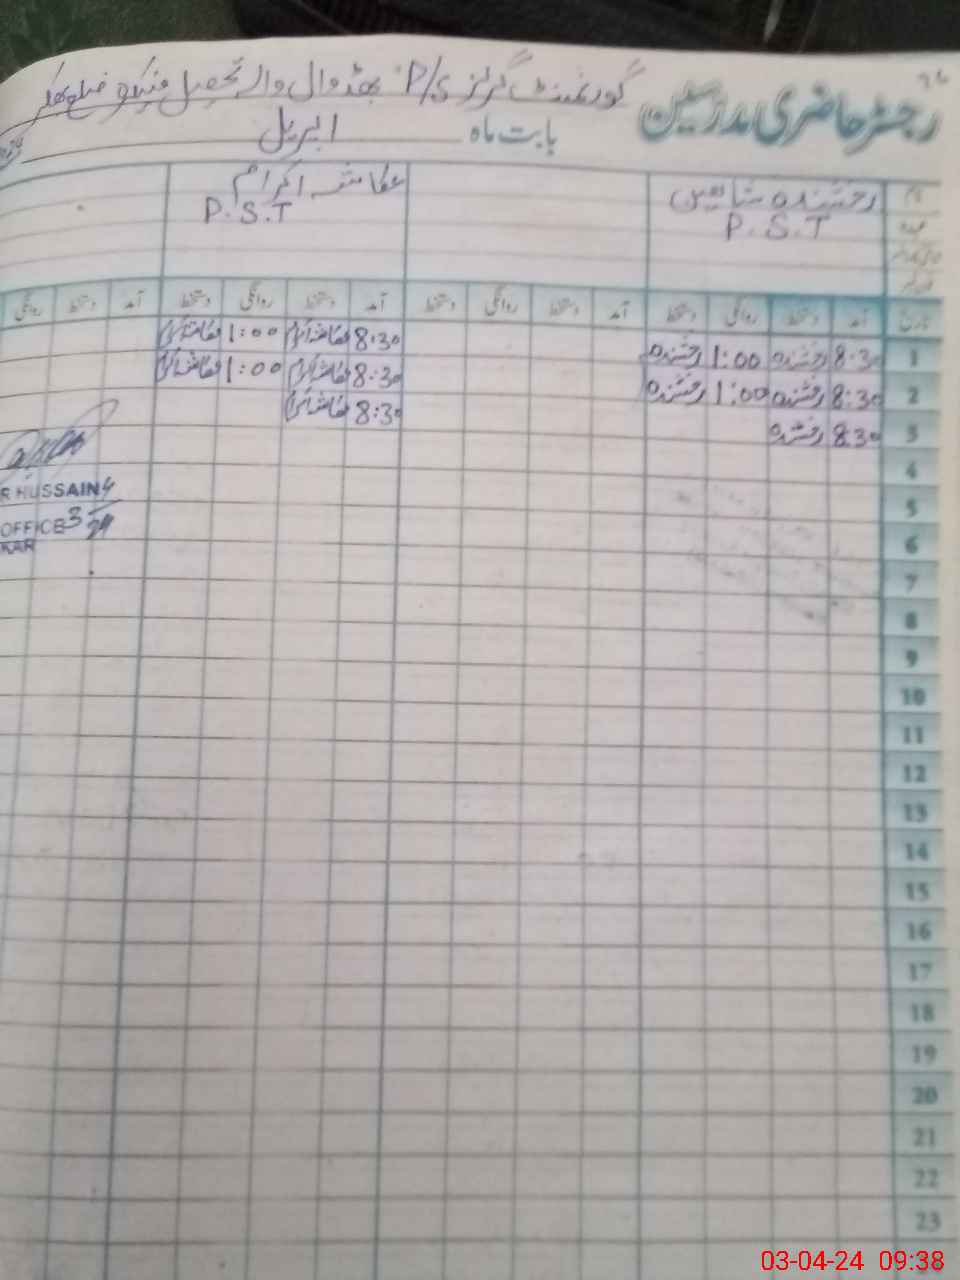 رجسٹر حاضری مدرسین
گورنمنٹ گرلز P/S بھڈوال والا تحصیل منکیرہ ضلع بھکر
بابت ماہ اپریل
نام رخشندہ شاہین
عہدہ P.S.T
عطائشہ اکرام
P.S.T
تاریخ آمد دستخط روانگی دستخط آمد دستخط روانگی دستخط آمد دستخط روانگی دستخط آمد دستخط روانگی
1 8:30 رخشندہ 1:00 رخشندہ 8:30 1:00
2 8:30 رخشندہ 1:00 رخشندہ 8:30 1:00
3 8:30 رخشندہ 8:30
4
5
6
7
8
9
10
11
12
13
14
15
16
17
18
19
20
21
22
23
R HUSSAIN
OFFICE
KAR
03-04-24 09:38